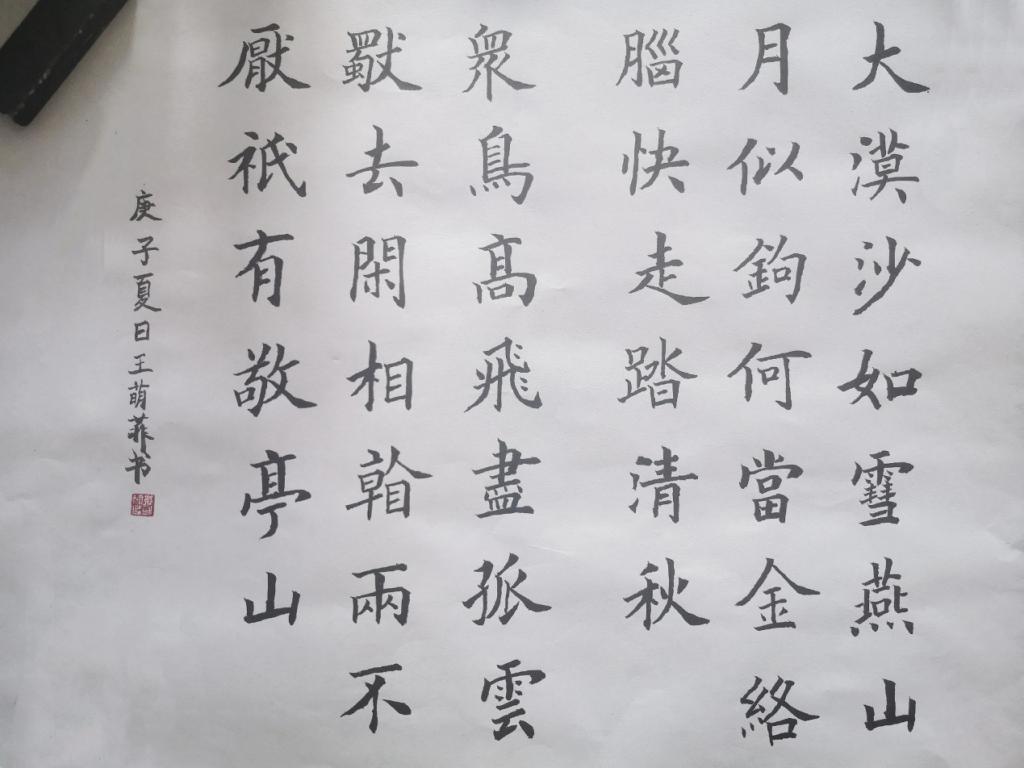 大漠沙如雪燕山
月似鉤何當金絡
腦快走踏清秋
衆鳥髙飛盡孤雲
獸去閑相看兩不
厭祇有敬亭山
庚子夏日王萌莽书